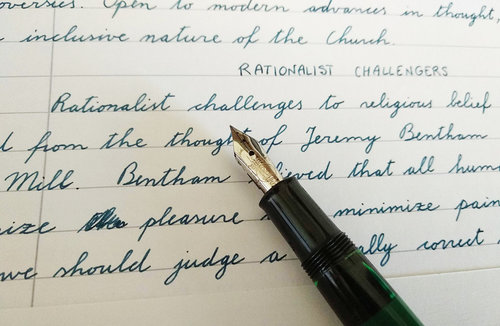 oversies. Open to modern advances in thought,
inclusive nature of the Church.
RATIONALIST CHALLENGERS
Rationalist challenges to religious belief
from the thought of Jeremy Bentham
Mill. Bentham that all
pleasure minimize pain
we should judge a correct